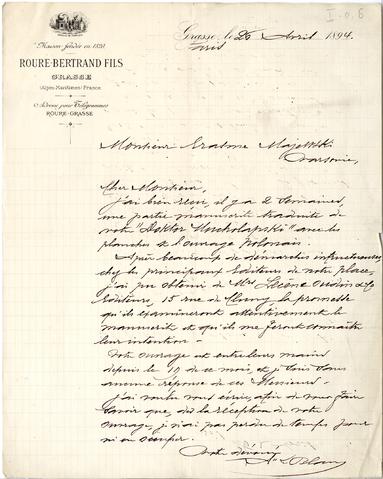 I.0.6
Maison fondée en 1820
ROURE-BERTRAND FILS
GRASSE
(Alpes-Maritimes) France
Adresse pour Télégrammes
ROURE-GRASSE
Grasse, le 26 Avril 1894.
Paris
Monsieur Erasme Majewski
Varsovie,
Cher Monsieur,
j'ai bien reçu, il y a 2 semaines,
une partie manuscrit traduite de
votre "Doktor Muchołapski" avec les
planches & l'ouvrage Polonais.
Après beaucoup de démarches infructueuses
chez les principaux Editeurs de notre place,
j'ai pu obtenir de Mrs Lecène Oudin & Cie
Editeurs, 15 rue de Cluny la promesse
qu'ils examineront attentivement le
manuscrit et qu'ils me feront connaître
leur intention.
Votre ouvrage est entre leurs mains
depuis le 19 de ce mois, et je suis sans
aucune réponse de ces Messieurs.
J'ai voulu vous écrire, afin de vous faire
savoir que, dès la réception de votre
ouvrage, je n'ai pas perdu de temps pour
m'en occuper.
Votre dévoué